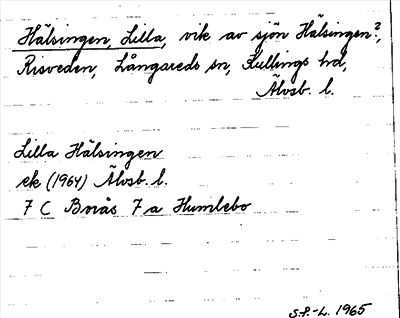 Hälsingen, Lilla, vik av sjön Hälsingen?,
Risveden, Långareds sn, Kullings hd,
Älvsb. l.
Lilla Hälsingen
ek (1964) Älvsb. l.
7 C Borås 7 a Humlebo
S.P.-L. 1965